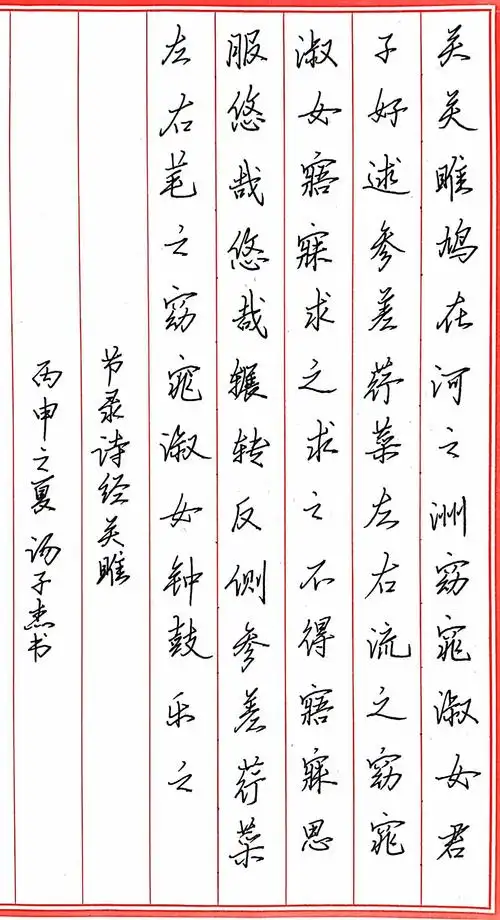 关关雎鸠在河之洲窈窕淑女君
子好逑参差荇菜左右流之窈窕
淑女寤寐求之求之不得寤寐思
服悠哉悠哉辗转反侧参差荇菜
左右芼之窈窕淑女钟鼓乐之
节录诗经关雎
丙申之夏 汤子杰书